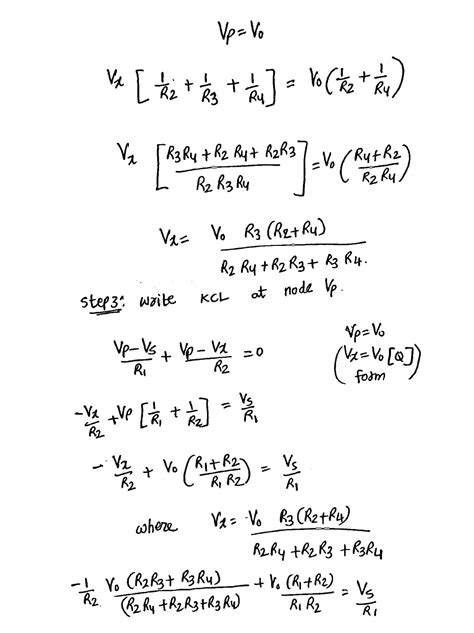 Vp = Vo
Vx [ 1/R2 + 1/R3 + 1/R4 ] = Vo ( 1/R2 + 1/R4 )
Vx [ (R3R4 + R2 R4 + R2R3) / (R2 R3 R4) ] = Vo ( (R4+R2) / (R2 R4) )
Vx = Vo R3 (R2+R4) / (R2 R4 + R2 R3 + R3 R4.)
Step3: write KCL at node Vp.
(Vp-Vs)/R1 + (Vp-Vx)/R2 = 0
Vp = Vo
(Vx = Vo [Q] form)
-Vx/R2 + Vp [ 1/R1 + 1/R2 ] = Vs/R1
- Vx/R2 + Vo ( (R1+R2) / (R1 R2) ) = Vs/R1
where Vx = Vo R3 (R2+R4) / (R2R4 + R2R3 + R3R4)
-1/R2 Vo (R2R3 + R3R4) / (R2R4 + R2R3 + R3R4) + Vo (R1+R2) / (R1 R2) = Vs/R1